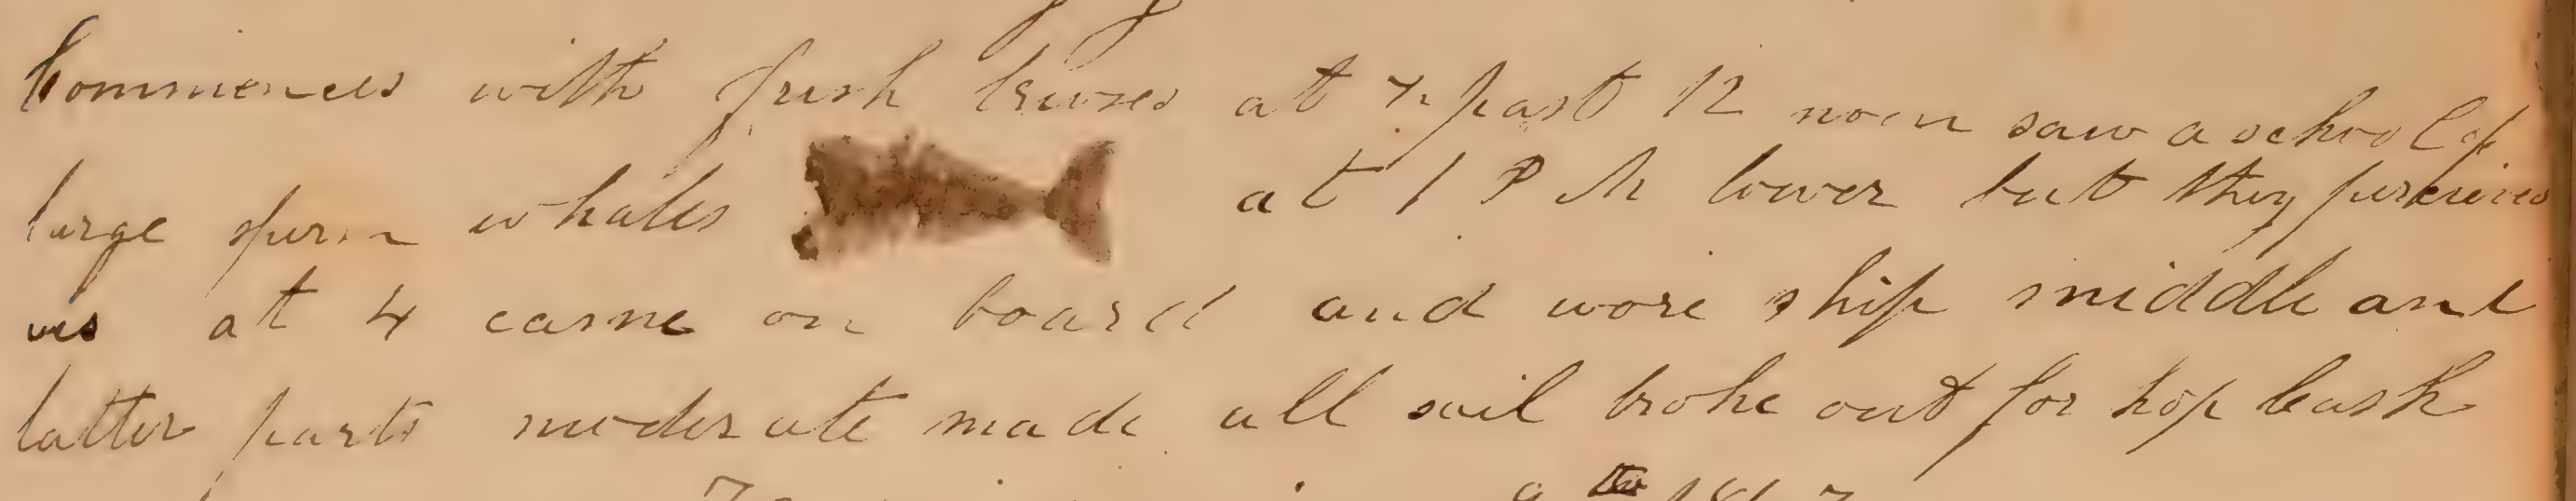 Commences with fresh breezes at ½ past 12 noon saw a school of
large sperm whales at 1 P M lower but they perkeived
us at 4 came on board and wore ship middle and
latter parts moderate made all sail broke out for hop cask